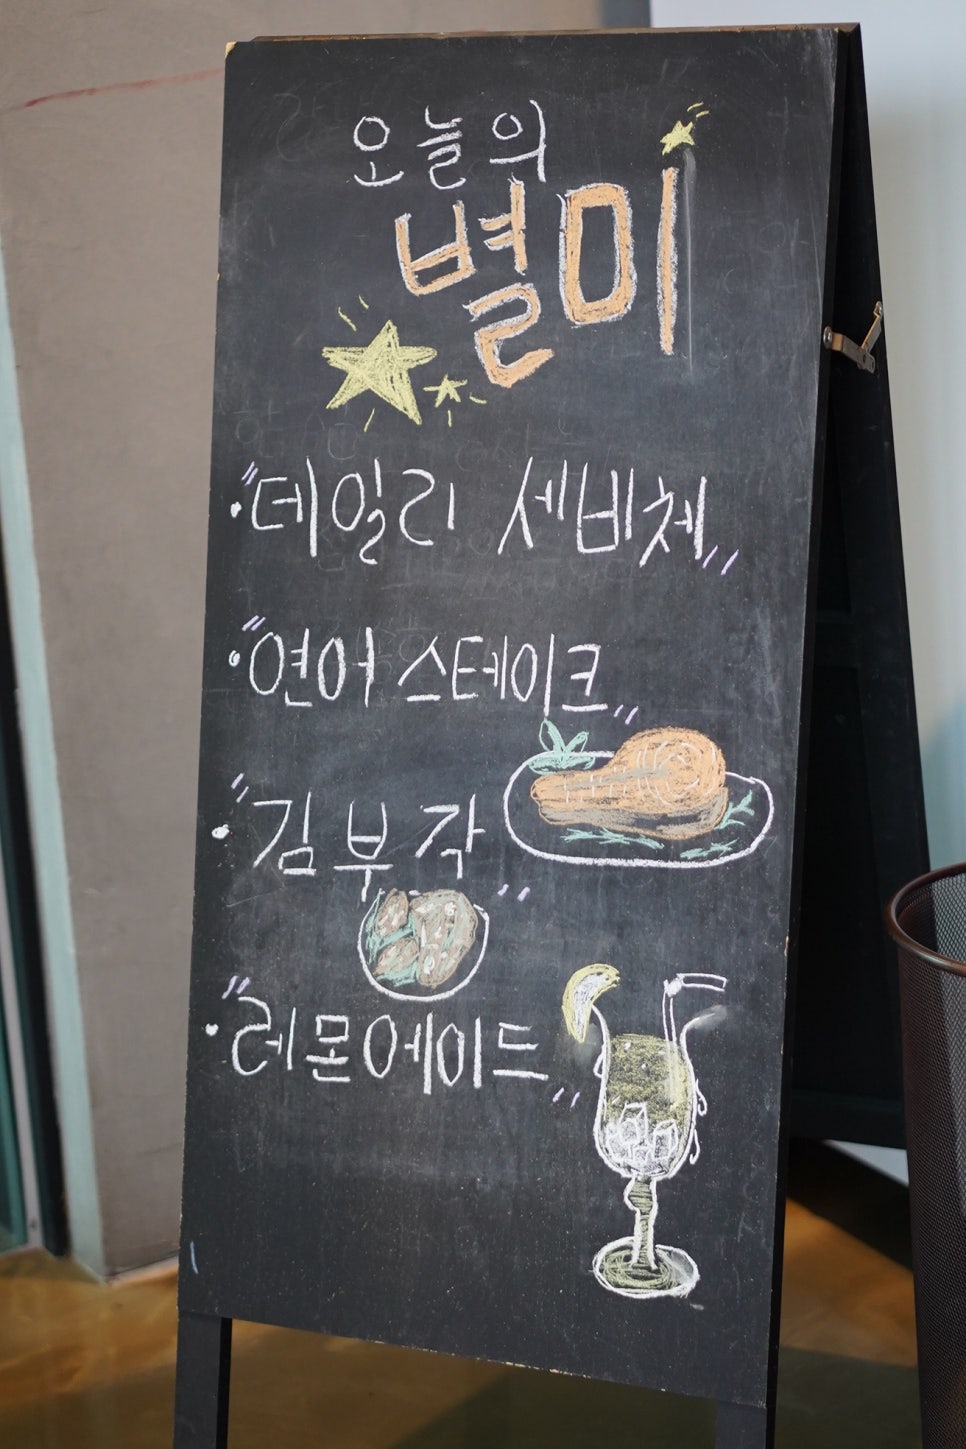 오늘의
별미
· "데일리 세비체"
· "연어 스테이크"
· "김부각"
· "레몬에이드"